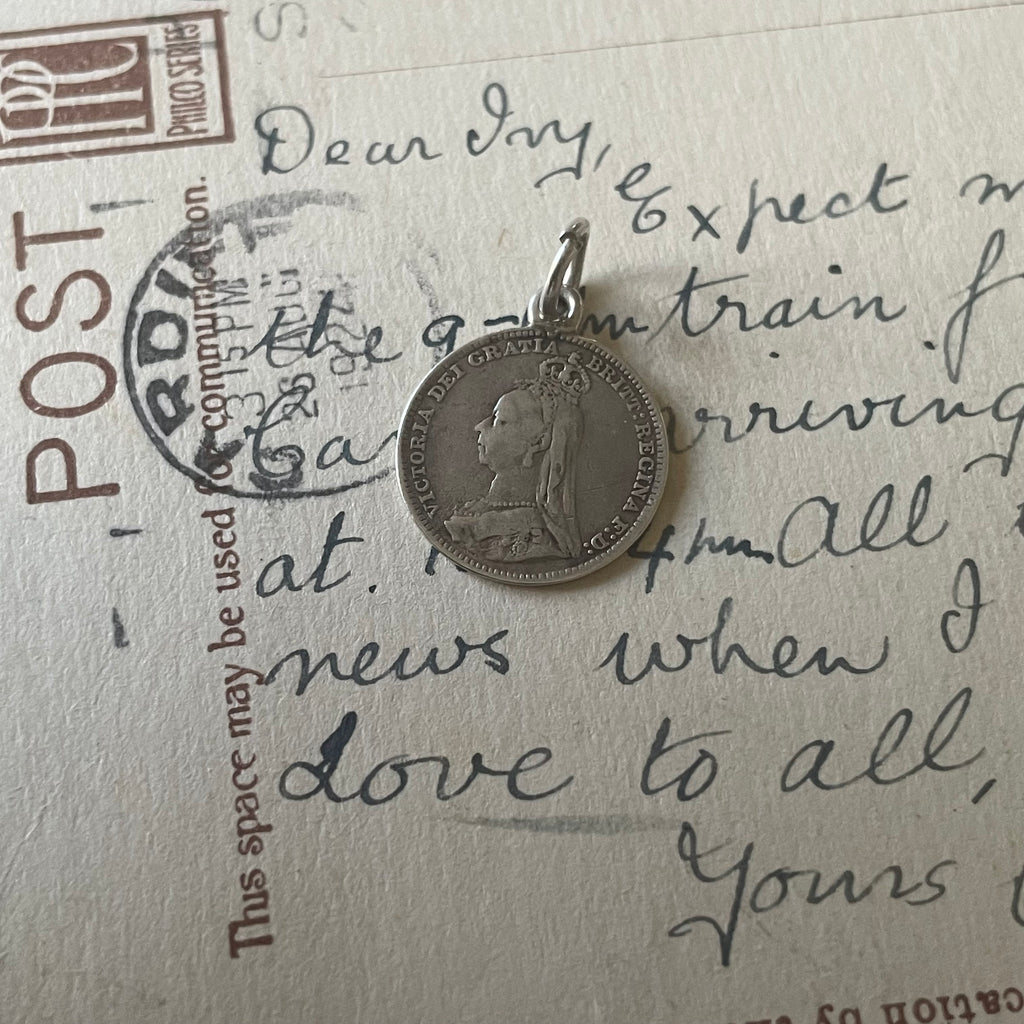 PHILCO SERIES
POST
This space may be used for communication.
RDI
3 15 PM
26 AUG
1922
Dear Ivy,
Expect
the train
arriving
at. 4pm All
news when I
Love to all,
Yours
VICTORIA DEI GRATIA BRITT: REGINA F: D: